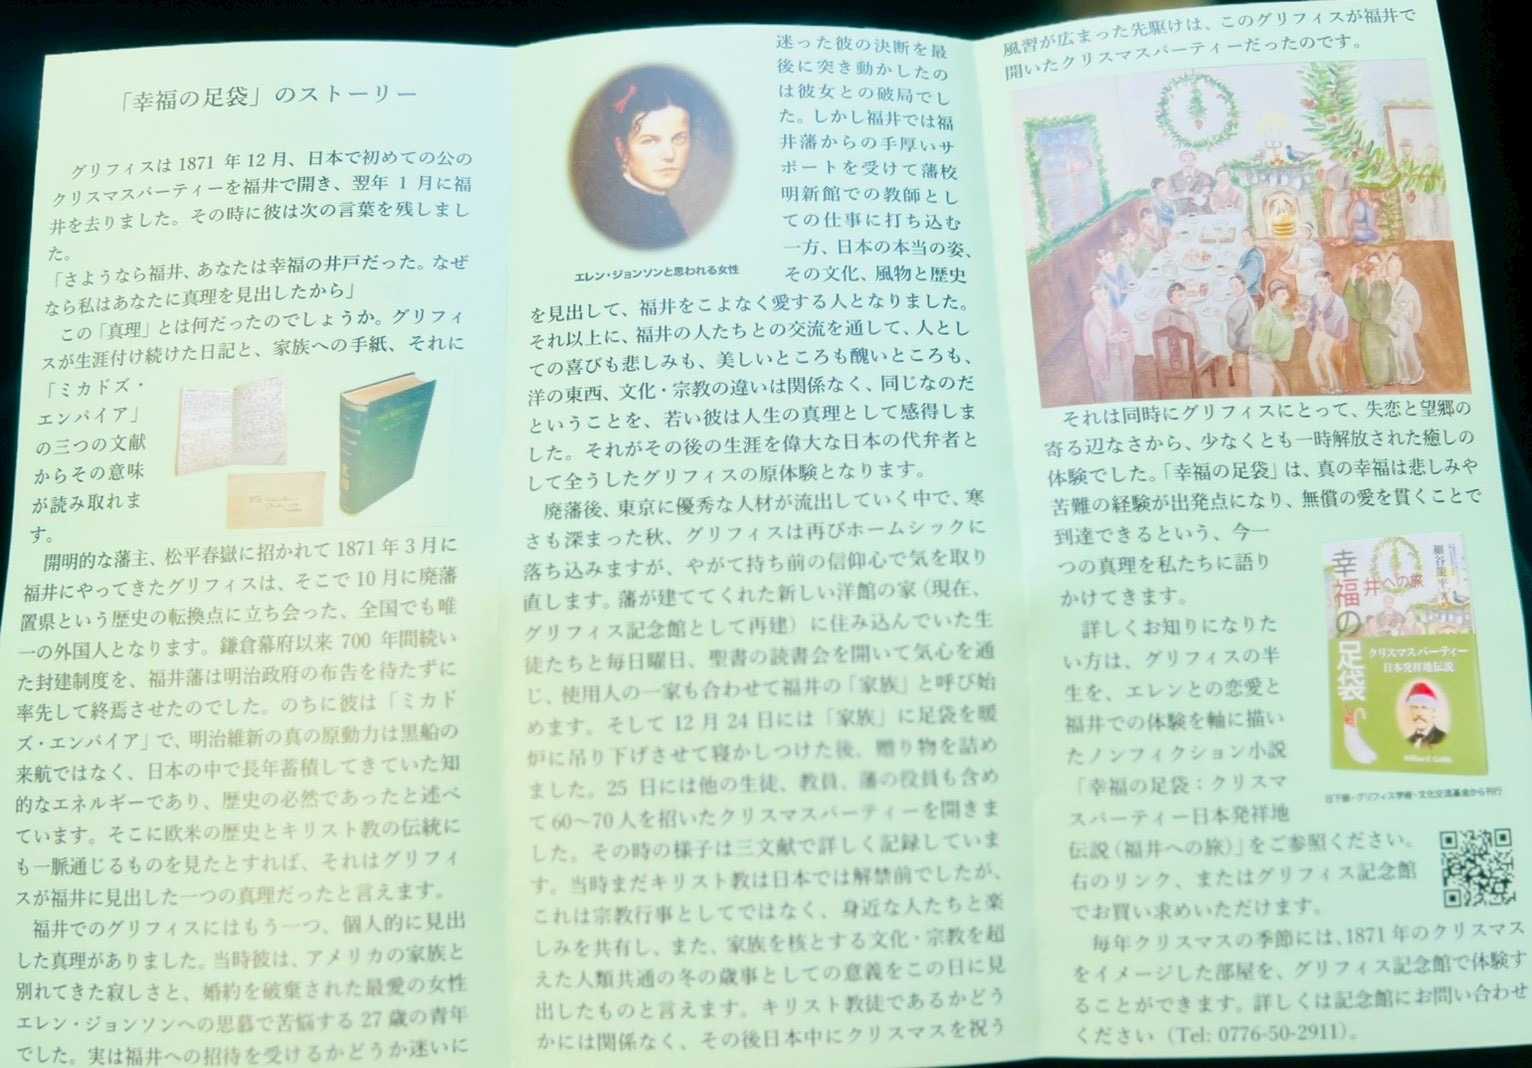 「幸福の足袋」のストーリー
グリフィスは1871 年12月、日本で初めての公の
クリスマスパーティーを福井で開き、翌年 1 月に福
井を去りました。その時に彼は次の言葉を残しまし
た。
「さようなら福井、あなたは幸福の井戸だった。なぜ
なら私はあなたに真理を見出したから」
この「真理」とは何だったのでしょうか。グリフィ
スが生涯付け続けた日記と、家族への手紙、それに
「ミカドズ・
エンパイア」
の三つの文献
からその意味
が読み取れま
す。
開明的な藩主、松平春嶽に招かれて1871年3月に
福井にやってきたグリフィスは、そこで10月に廃藩
置県という歴史の転換点に立ち会った、全国でも唯
一の外国人となります。鎌倉幕府以来 700 年間続い
た封建制度を、福井藩は明治政府の布告を待たずに
率先して終焉させたのでした。のちに彼は「ミカド
ズ・エンパイア」で、明治維新の真の原動力は黒船の
来航ではなく、日本の中で長年蓄積してきていた知
的なエネルギーであり、歴史の必然であったと述べ
ています。そこに欧米の歴史とキリスト教の伝統に
も一脈通じるものを見たとすれば、それはグリフィ
スが福井に見出した一つの真理だったと言えます。
福井でのグリフィスにはもう一つ、個人的に見出
した真理がありました。当時彼は、アメリカの家族と
別れてきた寂しさと、婚約を破棄された最愛の女性
エレン・ジョンソンへの思慕で苦悩する27歳の青年
でした。実は福井への招待を受けるかどうか迷いに
迷った彼の決断を最
後に突き動かしたの
は彼女との破局でし
た。しかし福井では福
井藩からの手厚いサ
ポートを受けて藩校
明新館での教師とし
ての仕事に打ち込む
一方、日本の本当の姿、
その文化、風物と歴史
エレン・ジョンソンと思われる女性
を見出して、福井をこよなく愛する人となりました。
それ以上に、福井の人たちとの交流を通して、人とし
ての喜びも悲しみも、美しいところも醜いところも、
洋の東西、文化・宗教の違いは関係なく、同じなのだ
ということを、若い彼は人生の真理として感得しま
した。それがその後の生涯を偉大な日本の代弁者と
して全うしたグリフィスの原体験となります。
廃藩後、東京に優秀な人材が流出していく中で、寒
さも深まった秋、グリフィスは再びホームシックに
落ち込みますが、やがて持ち前の信仰心で気を取り
直します。藩が建ててくれた新しい洋館の家（現在、
グリフィス記念館として再建）に住み込んでいた生
徒たちと毎日曜日、聖書の読書会を開いて気心を通
じ、使用人の一家も合わせて福井の「家族」と呼び始
めます。そして12月24日には「家族」に足袋を暖
炉に吊り下げさせて寝かしつけた後、贈り物を詰め
ました。25 日には他の生徒、教員、藩の役員も含め
て60～70人を招いたクリスマスパーティーを開きま
した。その時の様子は三文献で詳しく記録していま
す。当時まだキリスト教は日本では解禁前でしたが、
これは宗教行事としてではなく、身近な人たちと楽
しみを共有し、また、家族を核とする文化・宗教を超
えた人類共通の冬の歳事としての意義をこの日に見
出したものと言えます。キリスト教徒であるかどう
かには関係なく、その後日本中にクリスマスを祝う
風習が広まった先駆けは、このグリフィスが福井で
開いたクリスマスパーティーだったのです。
それは同時にグリフィスにとって、失恋と望郷の
寄る辺なさから、少なくとも一時解放された癒しの
体験でした。「幸福の足袋」は、真の幸福は悲しみや
苦難の経験が出発点になり、無償の愛を貫くことで
到達できるという、今一
つの真理を私たちに語り
かけてきます。
詳しくお知りになりた
い方は、グリフィスの半
生を、エレンとの恋愛と
福井での体験を軸に描い
たノンフィクション小説
「幸福の足袋：クリスマ
スパーティー日本発祥地
伝説（福井への旅）」をご参照ください。
右のリンク、またはグリフィス記念館
でお買い求めいただけます。
幸福の足袋
福井への旅
細谷龍平
クリスマスパーティー
日本発祥地伝説
日下部・グリフィス学術・文化交流基金から刊行
毎年クリスマスの季節には、1871年のクリスマス
をイメージした部屋を、グリフィス記念館で体験す
ることができます。詳しくは記念館にお問い合わせ
ください（Tel: 0776-50-2911）。